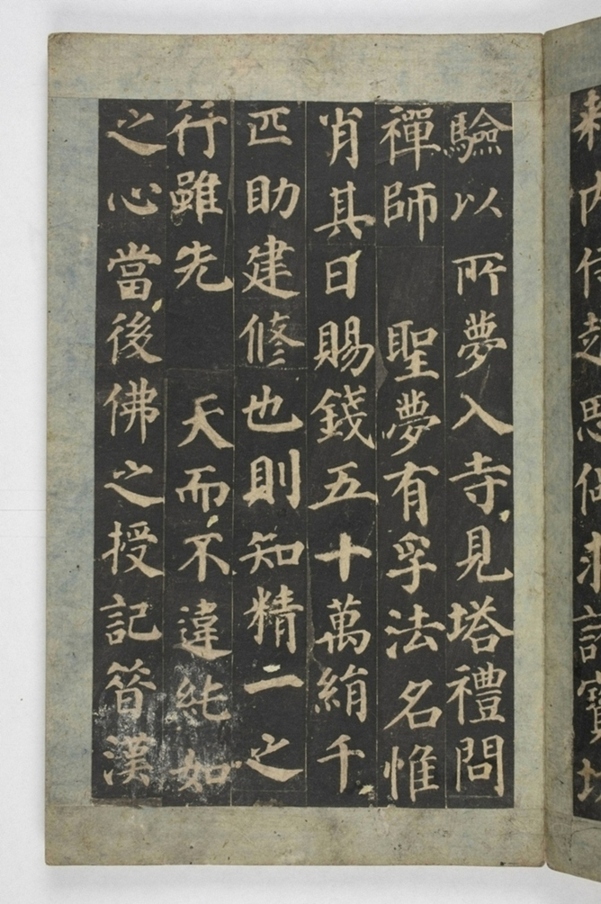 驗以所夢入寺見塔禮問
禪師 聖夢有孚法名惟
肖其日賜錢五十萬絹千
匹助建修也則知精一之
行雖先 天而不違純如
之心當後佛之授記昔漢